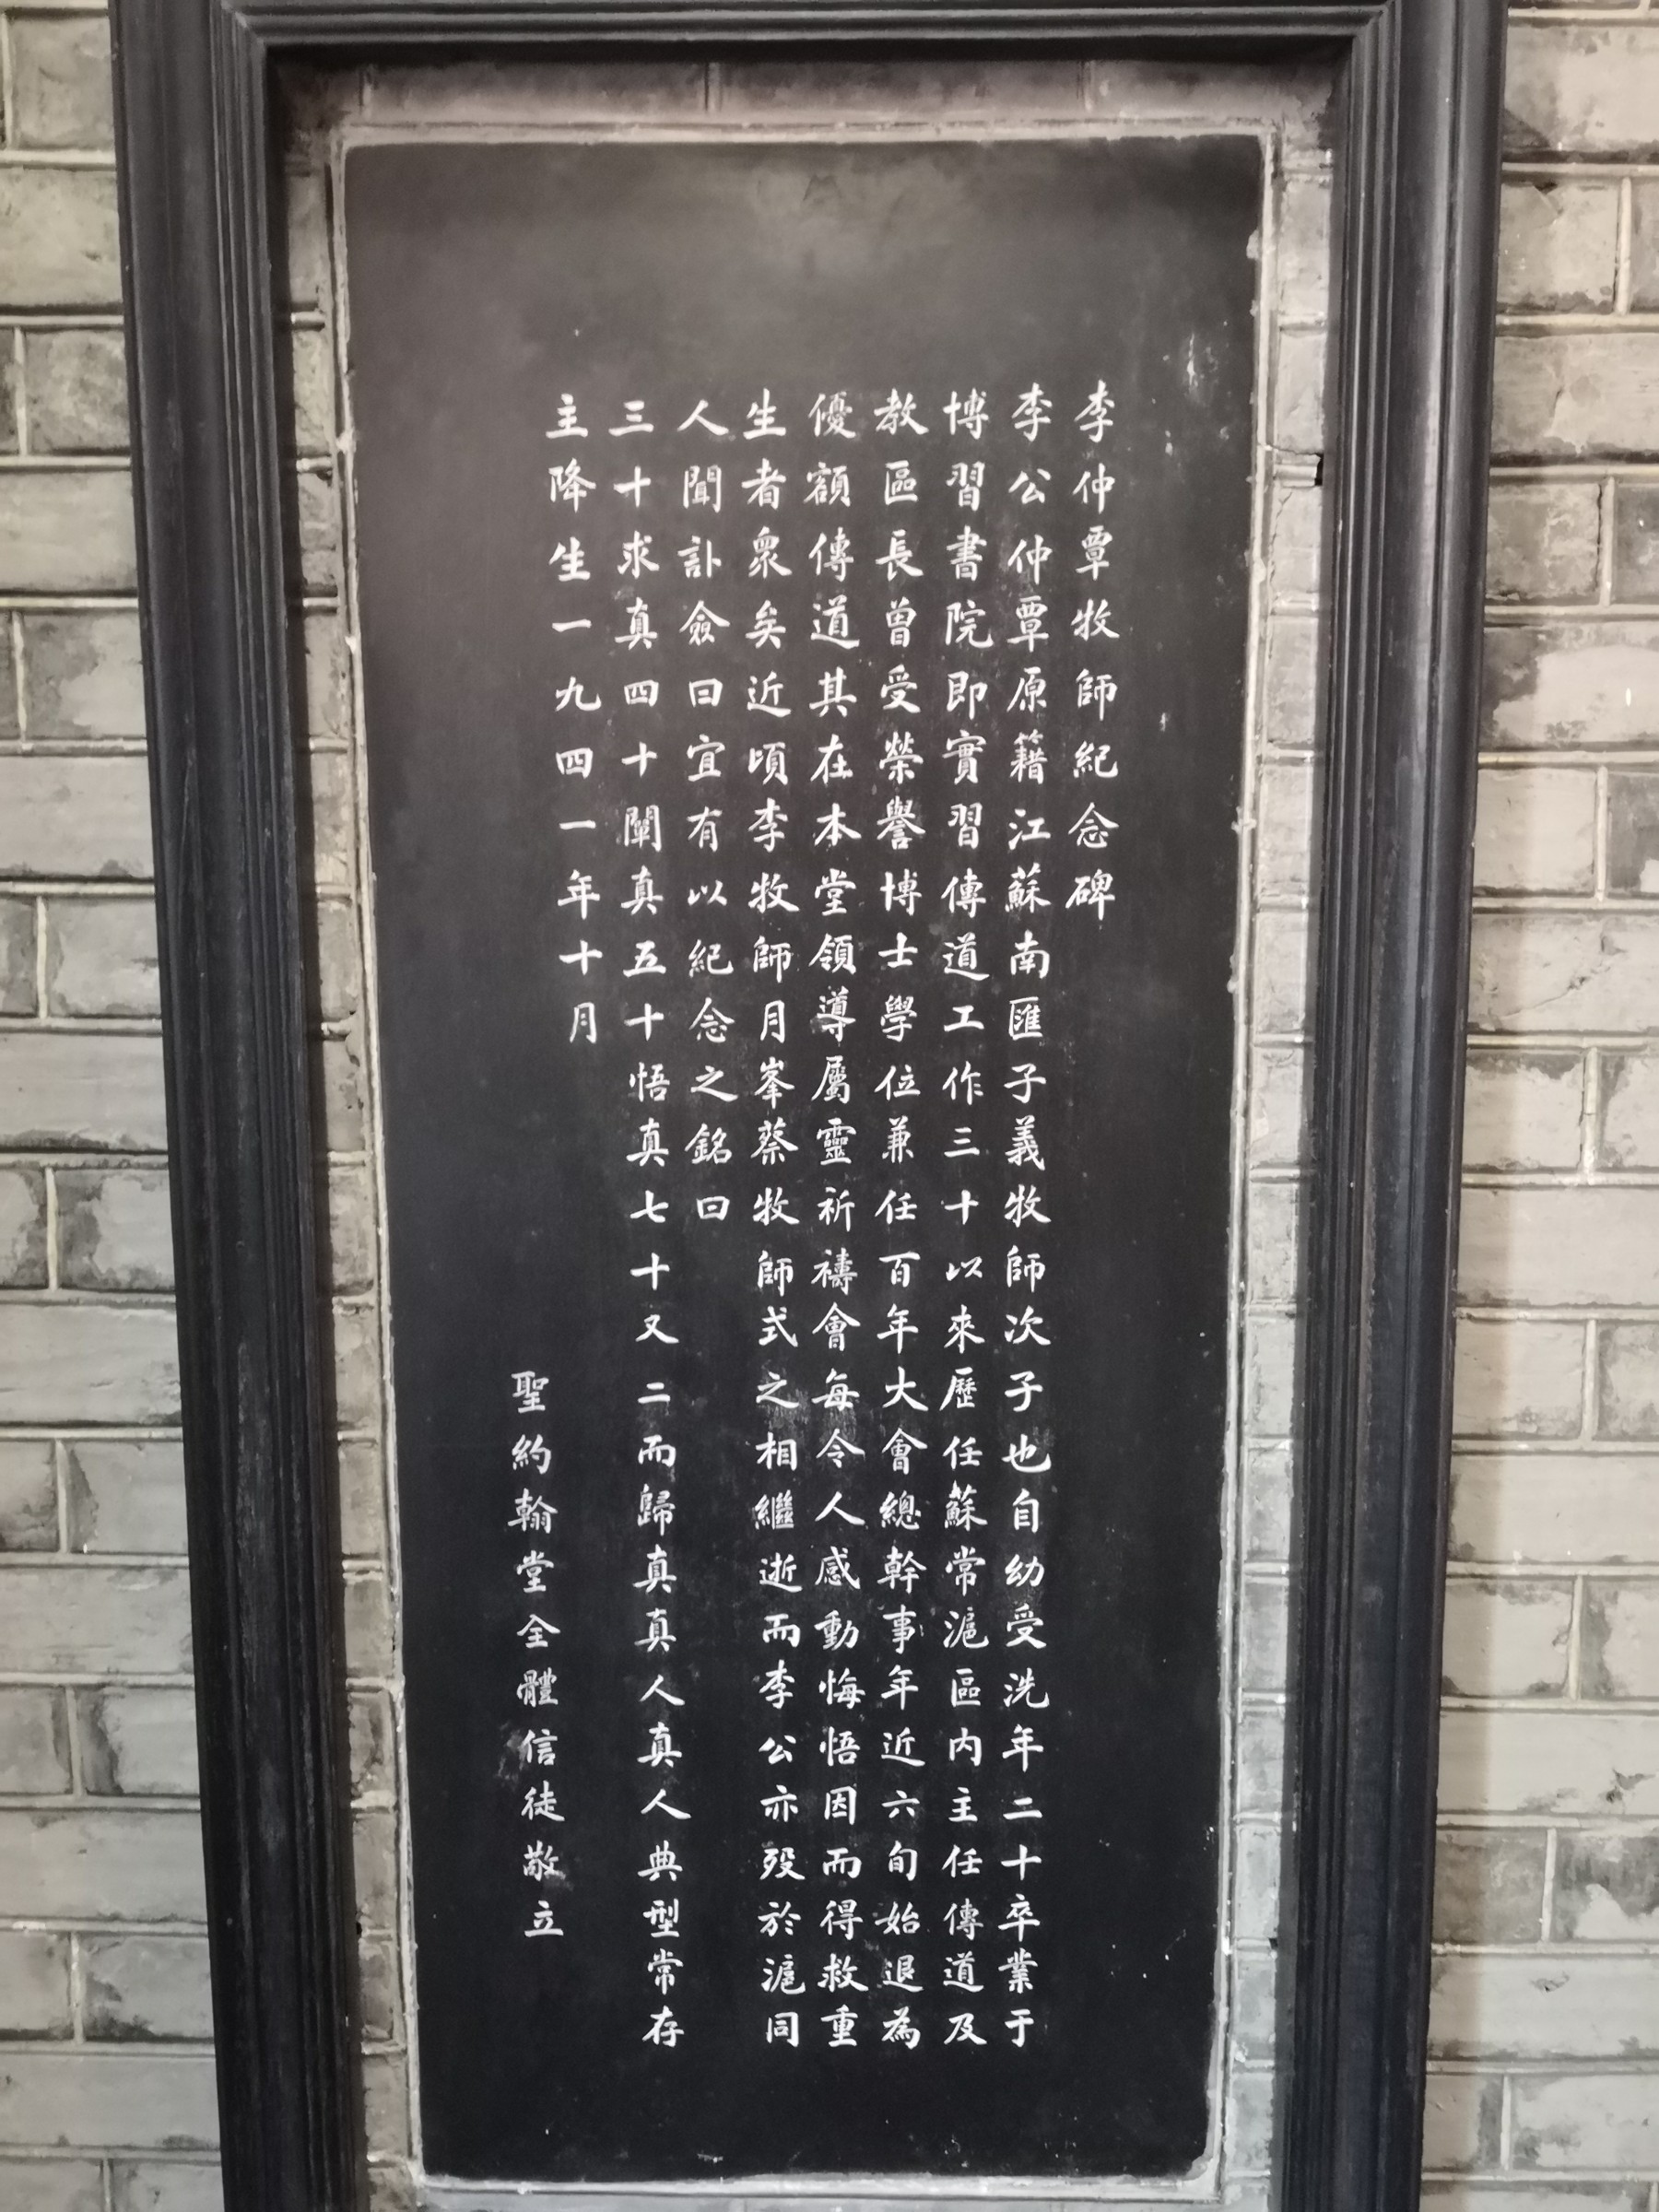 李仲覃牧師紀念碑
李公仲覃原籍江蘇南匯子義牧師次子也自幼受洗年二十卒業于
博習書院即實習傳道工作三十以來歷任蘇常滬區内主任傳道及
教區長曾受榮譽博士學位兼任百年大會總幹事年近六旬始退為
優額傳道其在本堂領導屬靈祈禱會每令人感動悔悟因而得救重
生者衆矣近頃李牧師月峯蔡牧師式之相繼逝而李公亦歿於滬同
人聞訃僉曰宜有以紀念之銘曰
三十求真四十闡真五十悟真七十又二而歸真真人真人典型常存
主降生一九四一年十月
聖約翰堂全體信徒敬立